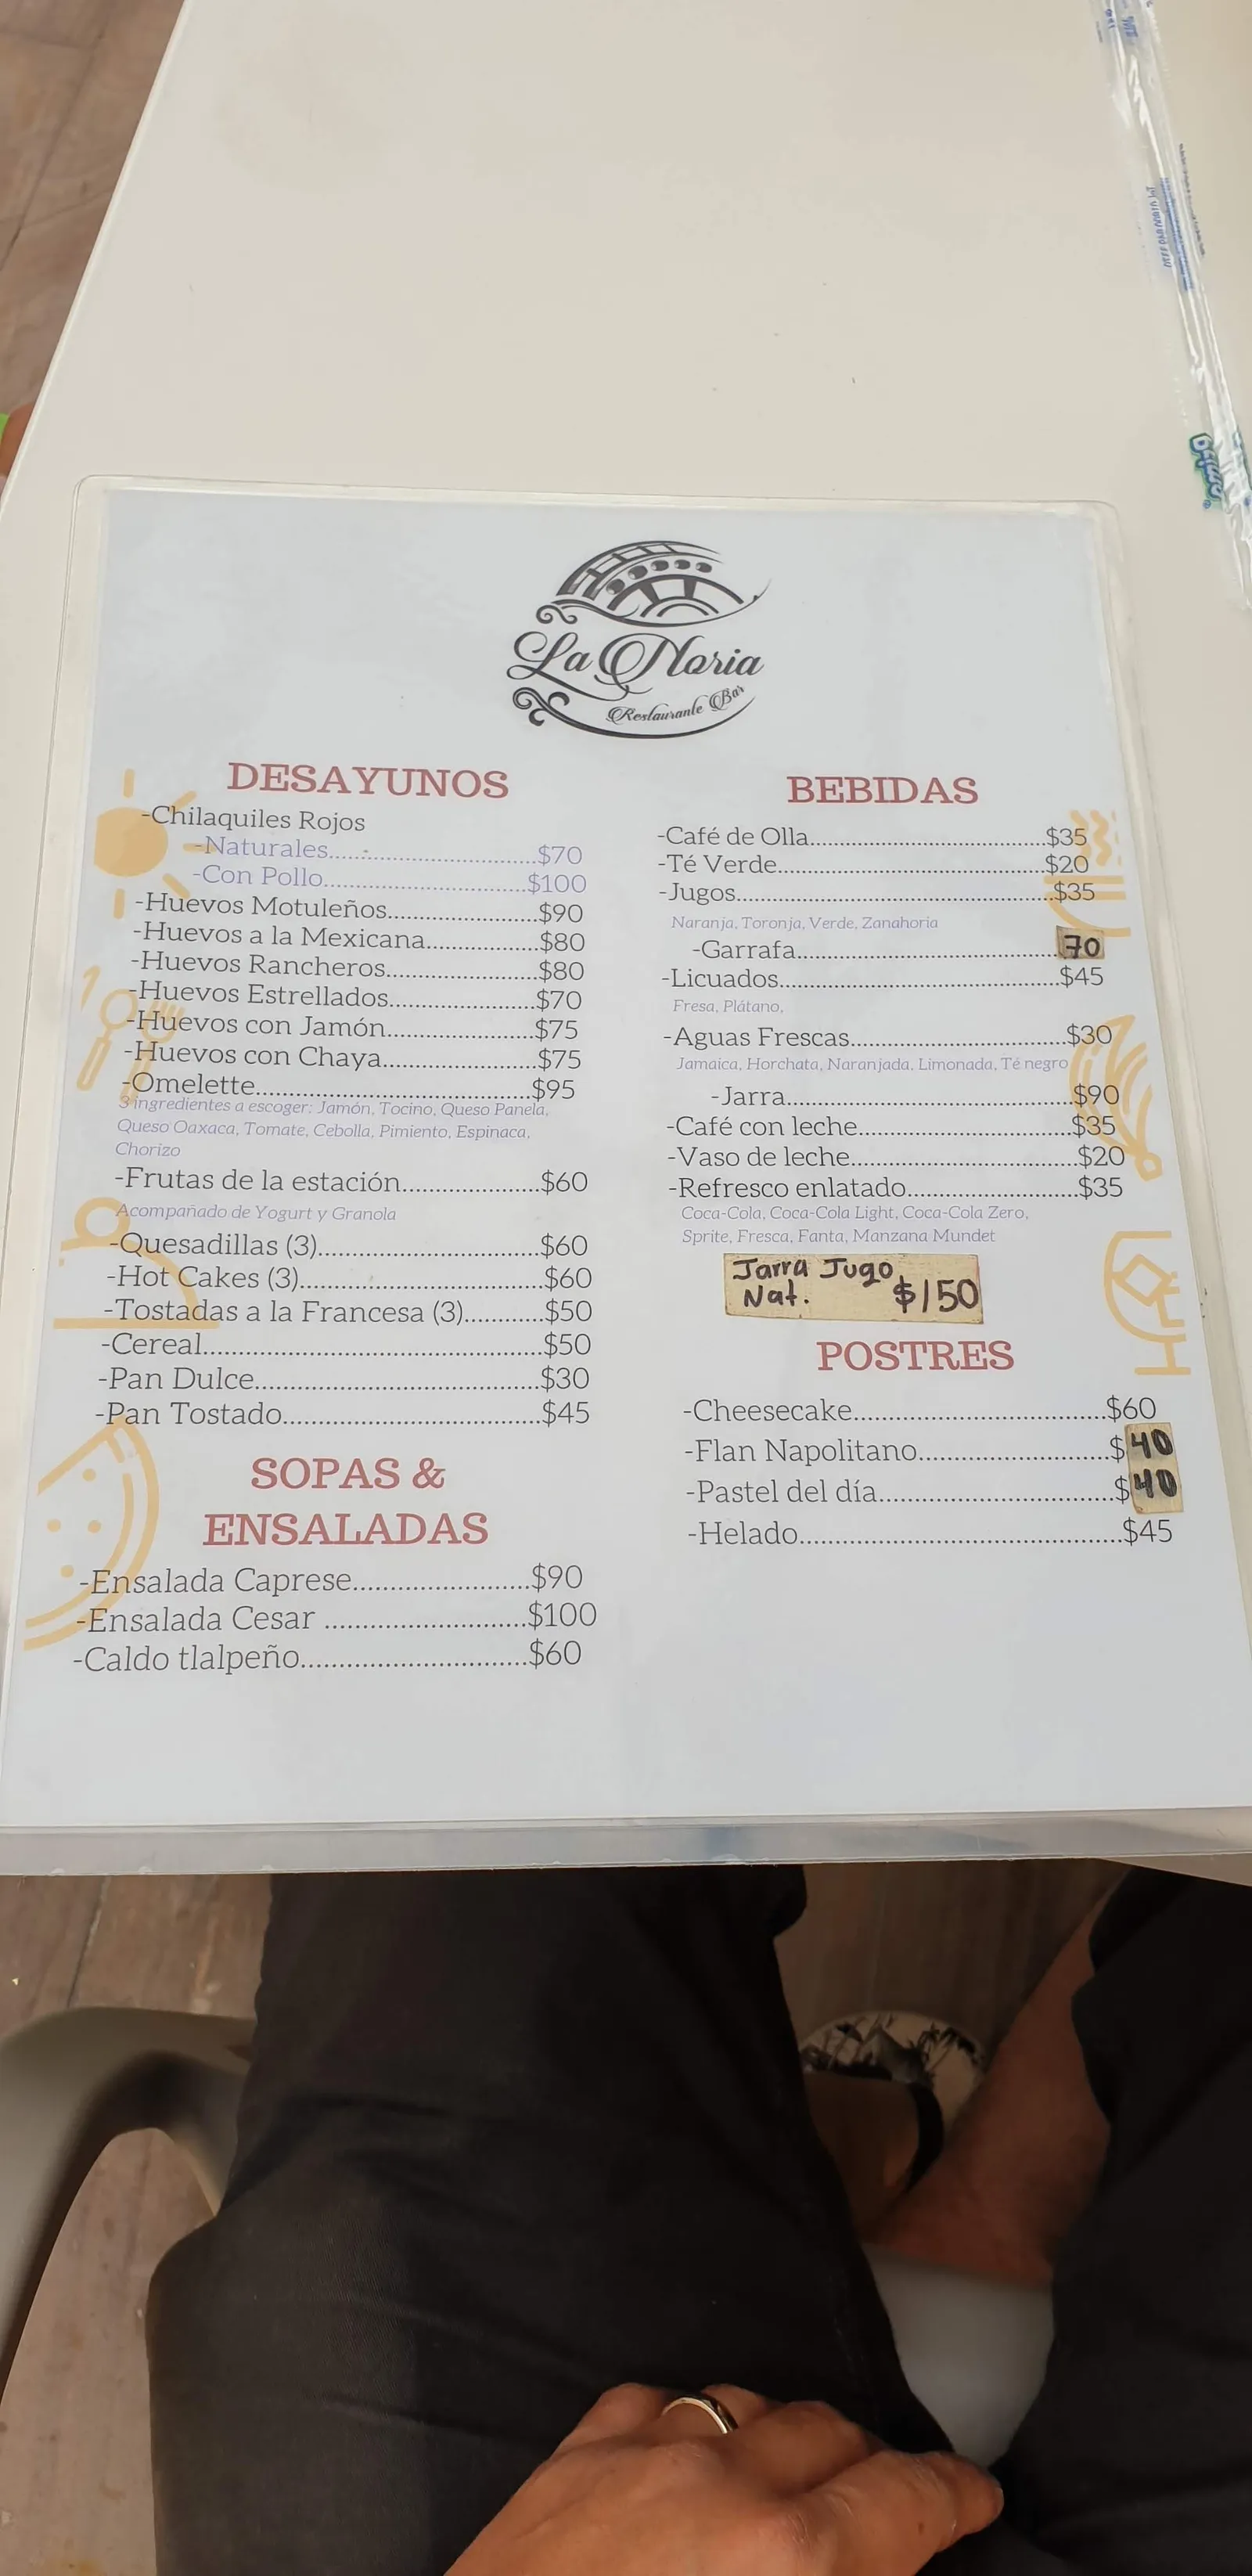 La Noria
Restaurante Bar
DESAYUNOS
-Chilaquiles Rojos
-Naturales..............................$70
-Con Pollo..............................$100
-Huevos Motuleños......................$90
-Huevos a la Mexicana................$80
-Huevos Rancheros.....................$80
-Huevos Estrellados....................$70
-Huevos con Jamón.....................$75
-Huevos con Chaya.....................$75
-Omelette........................................$95
3 ingredientes a escoger: Jamón, Tocino, Queso Panela,
Queso Oaxaca, Tomate, Cebolla, Pimiento, Espinaca,
Chorizo
-Frutas de la estación....................$60
Acompañado de Yogurt y Granola
-Quesadillas (3)................................$60
-Hot Cakes (3)...................................$60
-Tostadas a la Francesa (3)...........$50
-Cereal.................................................$50
-Pan Dulce.........................................$30
-Pan Tostado.....................................$45
SOPAS &
ENSALADAS
-Ensalada Caprese.........................$90
-Ensalada Cesar .............................$100
-Caldo tlalpeño................................$60
BEBIDAS
-Café de Olla...................................$35
-Té Verde........................................$20
-Jugos...............................................$35
Naranja, Toronja, Verde, Zanahoria
-Garrafa......................................70
-Licuados.........................................$45
Fresa, Plátano,
-Aguas Frescas...............................$30
Jamaica, Horchata, Naranjada, Limonada, Té negro
-Jarra.........................................$90
-Café con leche...............................$35
-Vaso de leche.................................$20
-Refresco enlatado.........................$35
Coca-Cola, Coca-Cola Light, Coca-Cola Zero,
Sprite, Fresca, Fanta, Manzana Mundet
Jarra Jugo
Nat. $150
POSTRES
-Cheesecake.....................................$60
-Flan Napolitano............................$40
-Pastel del día..................................$40
-Helado..............................................$45